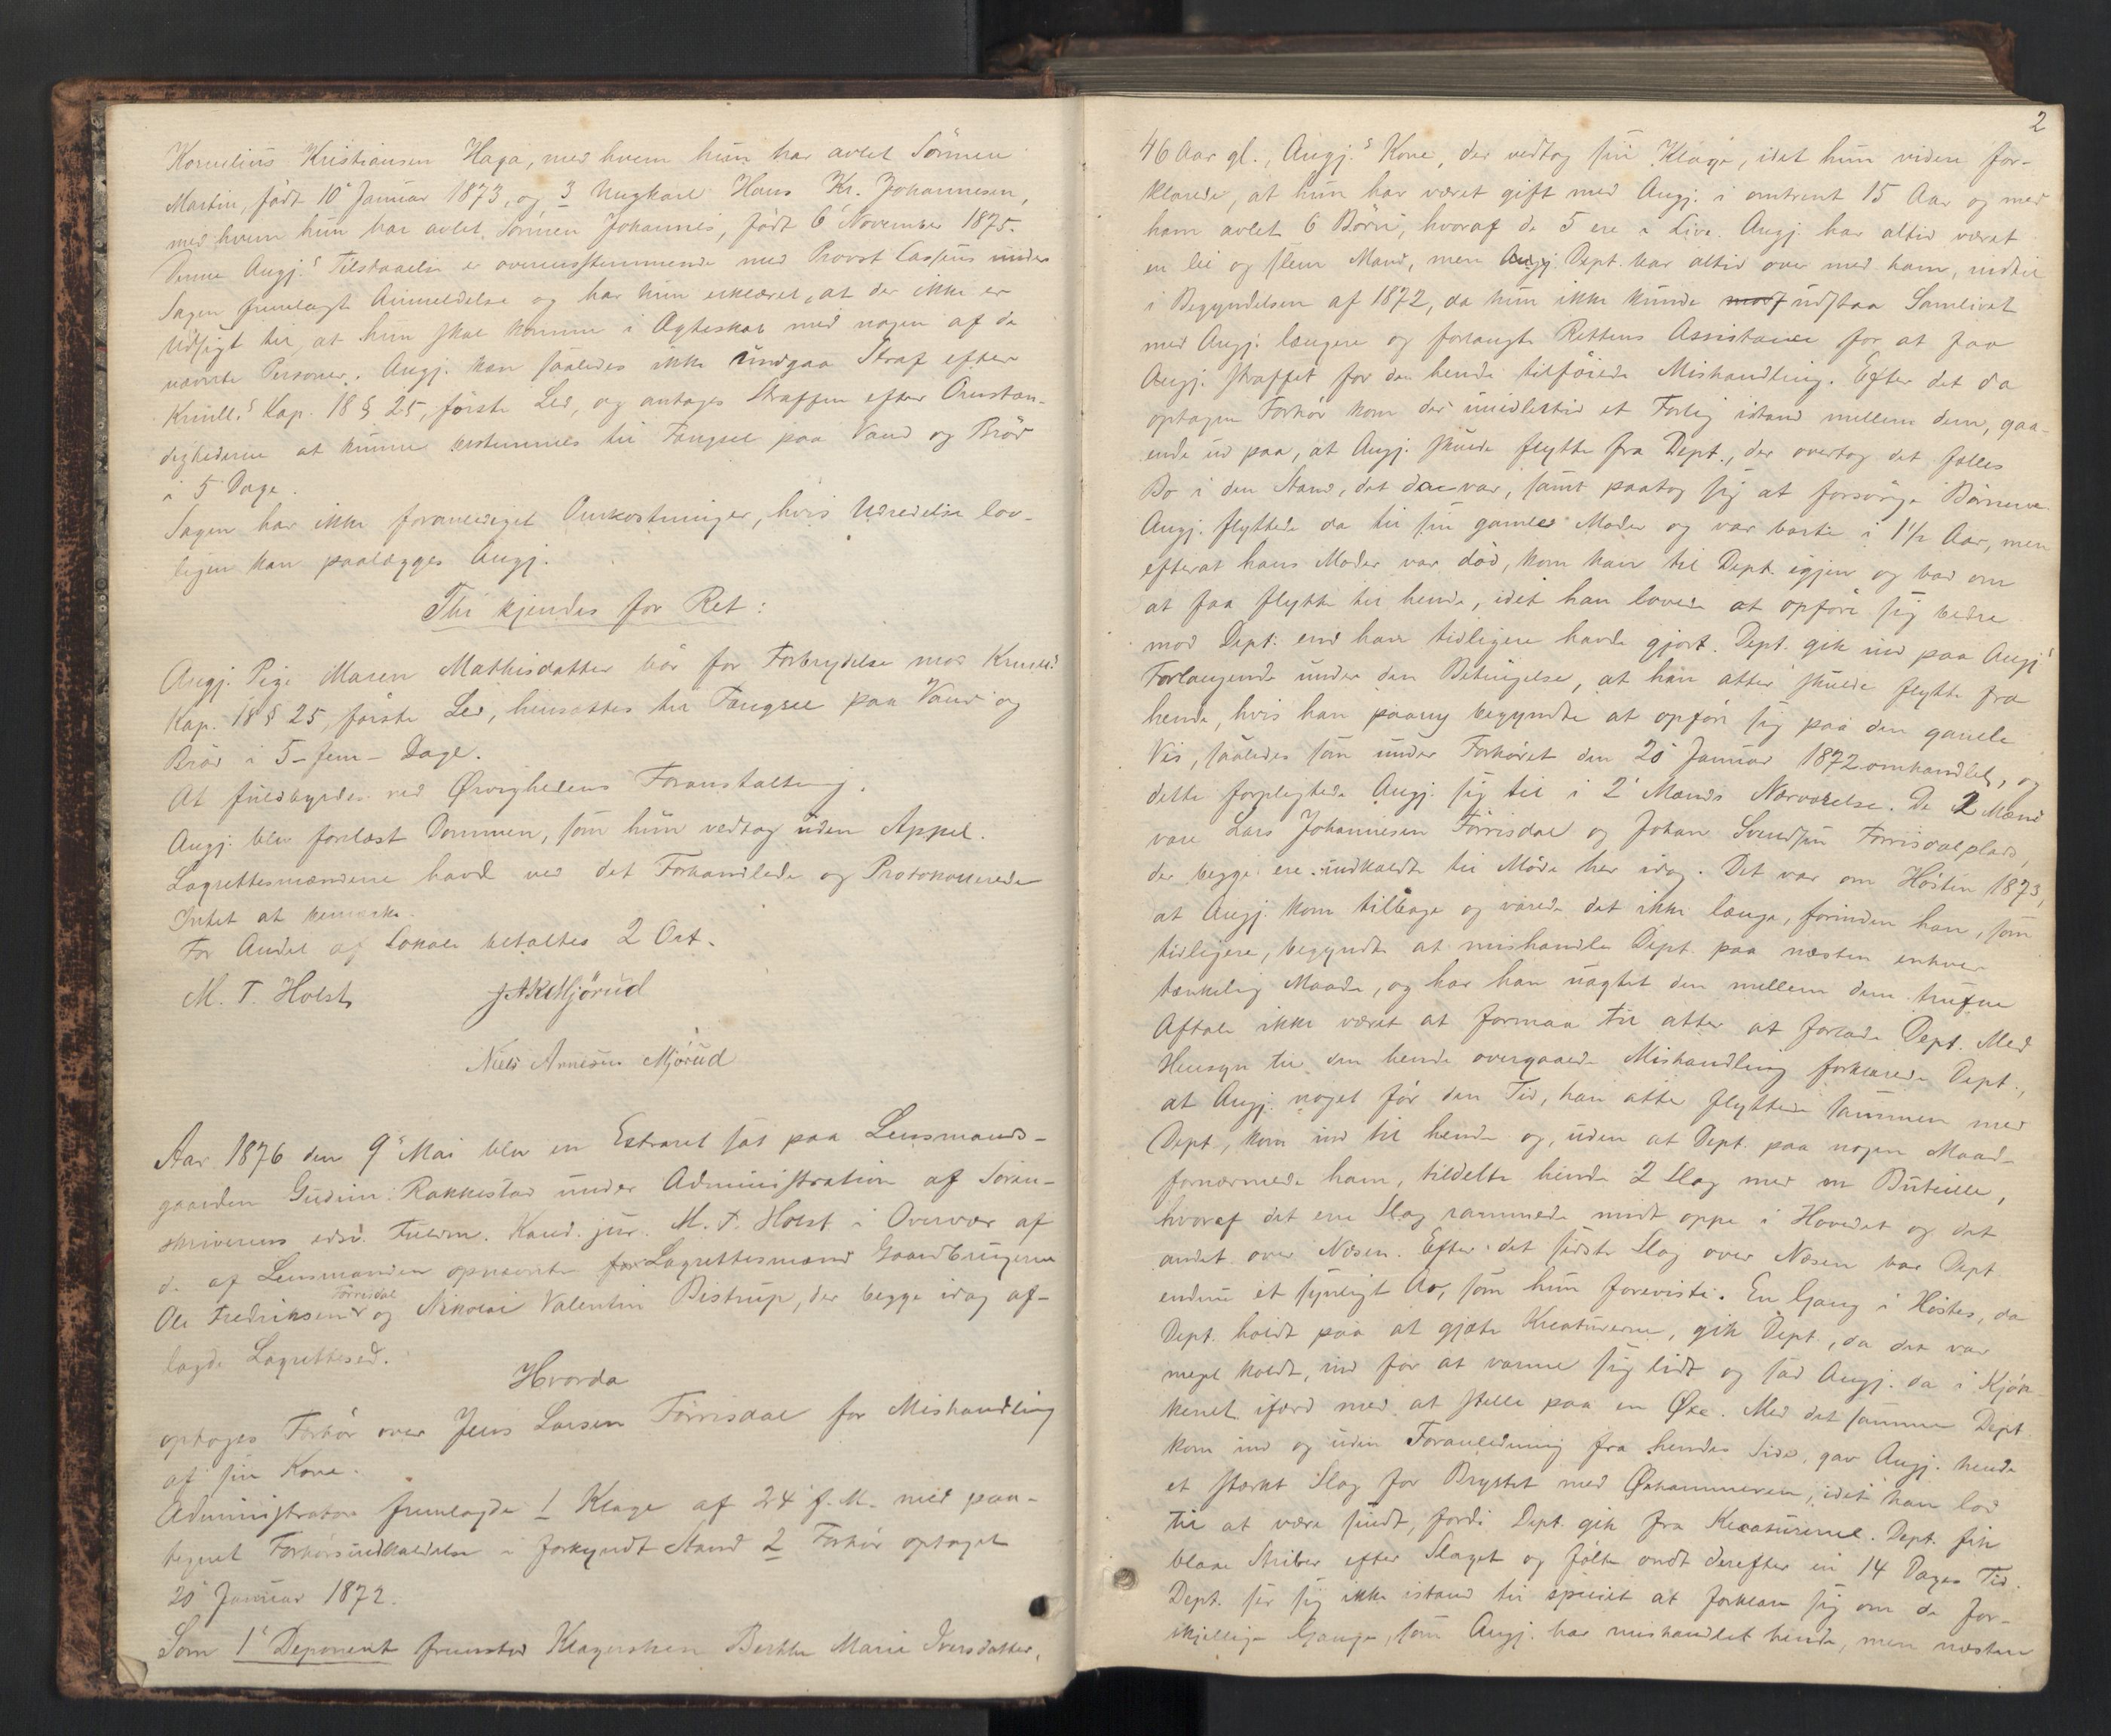 Kornelius Kristiansen Haga, med hvem hun har avlet Sønnen
Martin, født 10 Januar 1873, og 3 Ungkarl Hans Kr. Johannesen,
med hvem hun har avlet Sønnen Johannes, født 6 November 1875.
Denne Angj.s Tilstaaelse er overensstemmende med Provst Cassius under
Sagen fremlagt Anmeldelse og har hun erklæret, at der ikke er
Udsigt til, at hun skal komme i Ægteskab med nogen af de
nævnte Personer. Angj. kan saaledes ikke undgaa Straf efter
Kriml.s Kap. 18 § 25, første Led, og antages Straffen efter Omstæn-
dighederne at kunne bestemmes til Fængsel paa Vand og Brød
i 5 Dage.
Sagen har ikke foranlediget Omkostninger, hvis Udredelse lov-
ligen kan paalægges Angj.
Thi kjendes for Ret:
Angj. Pige Maren Mathisdatter bør for Forbrydelse mod Kriml.s
Kap. 18 § 25, første Led, hensættes til Fængsel paa Vand og
Brød i 5 - fem - Dage.
At fuldbyrdes ved Øvrighedens Foranstaltning.
Angj. blev forelæst Dommen, som hun vedtog uden Appel.
Lagrettesmændene havde ved det Forhandlede og Protokollerede
Intet at bemærke.
For Andel af Lokale betaltes 2 Ort.
M. T. Holst
Niels Arnesen Mjørud
Aar 1876 den 9 Mai blev en Extraret sat paa Lensmands-
gaarden Gudim i Rakkestad under Administration af Soren-
skriverens edsv. Fuldm. Kand. jur. M. T. Holst i Overvær af
d. af Lensmanden opnævnte for Lagrettesmænd Gaardbrugerne
Tørrisdal
Ole Fredriksen og Nikolai Valentin Bistrup, der begge idag af-
lagde Lagrettesed.
Hvorda
optoges Forhør over Jens Larsen Tørrisdal for Mishandling
af sin Kone.
Administrator fremlagde 1 Klage af 24 f. M. med paa-
tegnet Forhørsindkaldelse i forkyndt Stand 2 Forhør optaget
20 Januar 1872.
Som 1 Deponent fremstod Klagersken Berthe Marie Iversdatter,
2
46 Aar gl., Angj.s Kone, der vedtog sin Klage, idet hun videre for-
klarede, at hun har været gift med Angj. i omtrent 15 Aar og med
ham avlet 6 Børn, hvoraf de 5 ere i Live. Angj. har altid været
en lei og slem Mand, men Angj. Dept. bar altid over med ham, indtil
i Begyndelsen af 1872, da hun ikke kunde udstaa Samlivet
med Angj. længere og forlangte Rettens Assistance for at faa
Angj. straffet for den hende tilføiede Mishandling. Efter det da
optagne Forhør kom der imidlertid et Forlig istand mellem dem, gaa-
ende ud paa, at Angj. skulde flytte fra Dept., der overtog det fælles
Bo i den Stand, det da var, samt paatog sig at forsørge Børnene.
Angj. flyttede da til sin gamle Moder og var borte i 1 1/2 Aar, men
efterat hans Moder var død, kom han til Dept. igjen og bad om
at faa flytte til hende, idet han lovede at opføre sig bedre
mod Dept. end han tidligere havde gjort. Dept. gik ind paa Angj.s
Forlangende under den Betingelse, at han atter skulde flytte fra
hende, hvis han paany begyndte at opføre sig paa den gamle
Vis, saaledes som under Forhøret den 20 Januar 1872 omhandlet, og
dette forpligtede Angj. sig til i 2 Mænds Nærværelse. De 2 Mænd
vare Lars Johannesen Tørrisdal og Johan Svendsen Tørrisdalplads,
der begge ere indkaldte til Møde her idag. Det var om Høsten 1873,
at Angj. kom tilbage og varede det ikke længe, forinden han, som
tidligere, begyndte at mishandle Dept. paa næsten enhver
tænkelig Maade, og har han uagtet den mellem dem trufne
Aftale ikke været at formaa til atter at forlade Dept. Med
Hensyn til den hende overgaaede Mishandling forklarede Dept.,
at Angj. noget før den Tid, han atter flyttede sammen med
Dept., kom ind til hende og, uden at Dept. paa nogen Maade
fornærmede ham, tildelte hende 2 Slag med en Buteille,
hvoraf det ene Slag rammede midt oppe i Hovedet og det
andet over Næsen. Efter det sidste Slag over Næsen bar Dept.
endnu et synligt Ar, som hun foreviste. En Gang i Høstes, da
Dept. holdt paa at gjæte Kreaturerne, gik Dept., da det var
meget koldt, ind for at varme sig lidt og sad Angj. da i Kjøk-
kenet ifærd med at stelle paa en Øxe. Med det samme Dept.
kom ind og uden Foranledning fra hendes Side, gav Angj. hende
et stærkt Slag for Brystet med Øxehammeren, idet han lod
til at være sindt, fordi Dept. gik fra Kreaturerne. Dept. fik
blaae Striber efter Slaget og følte ondt derefter en 14 Dages Tid.
Dept. ser sig ikke istand til specielt at forklare sig om de for-
skjellige Gange, som Angj. har mishandlet hende, men næsten